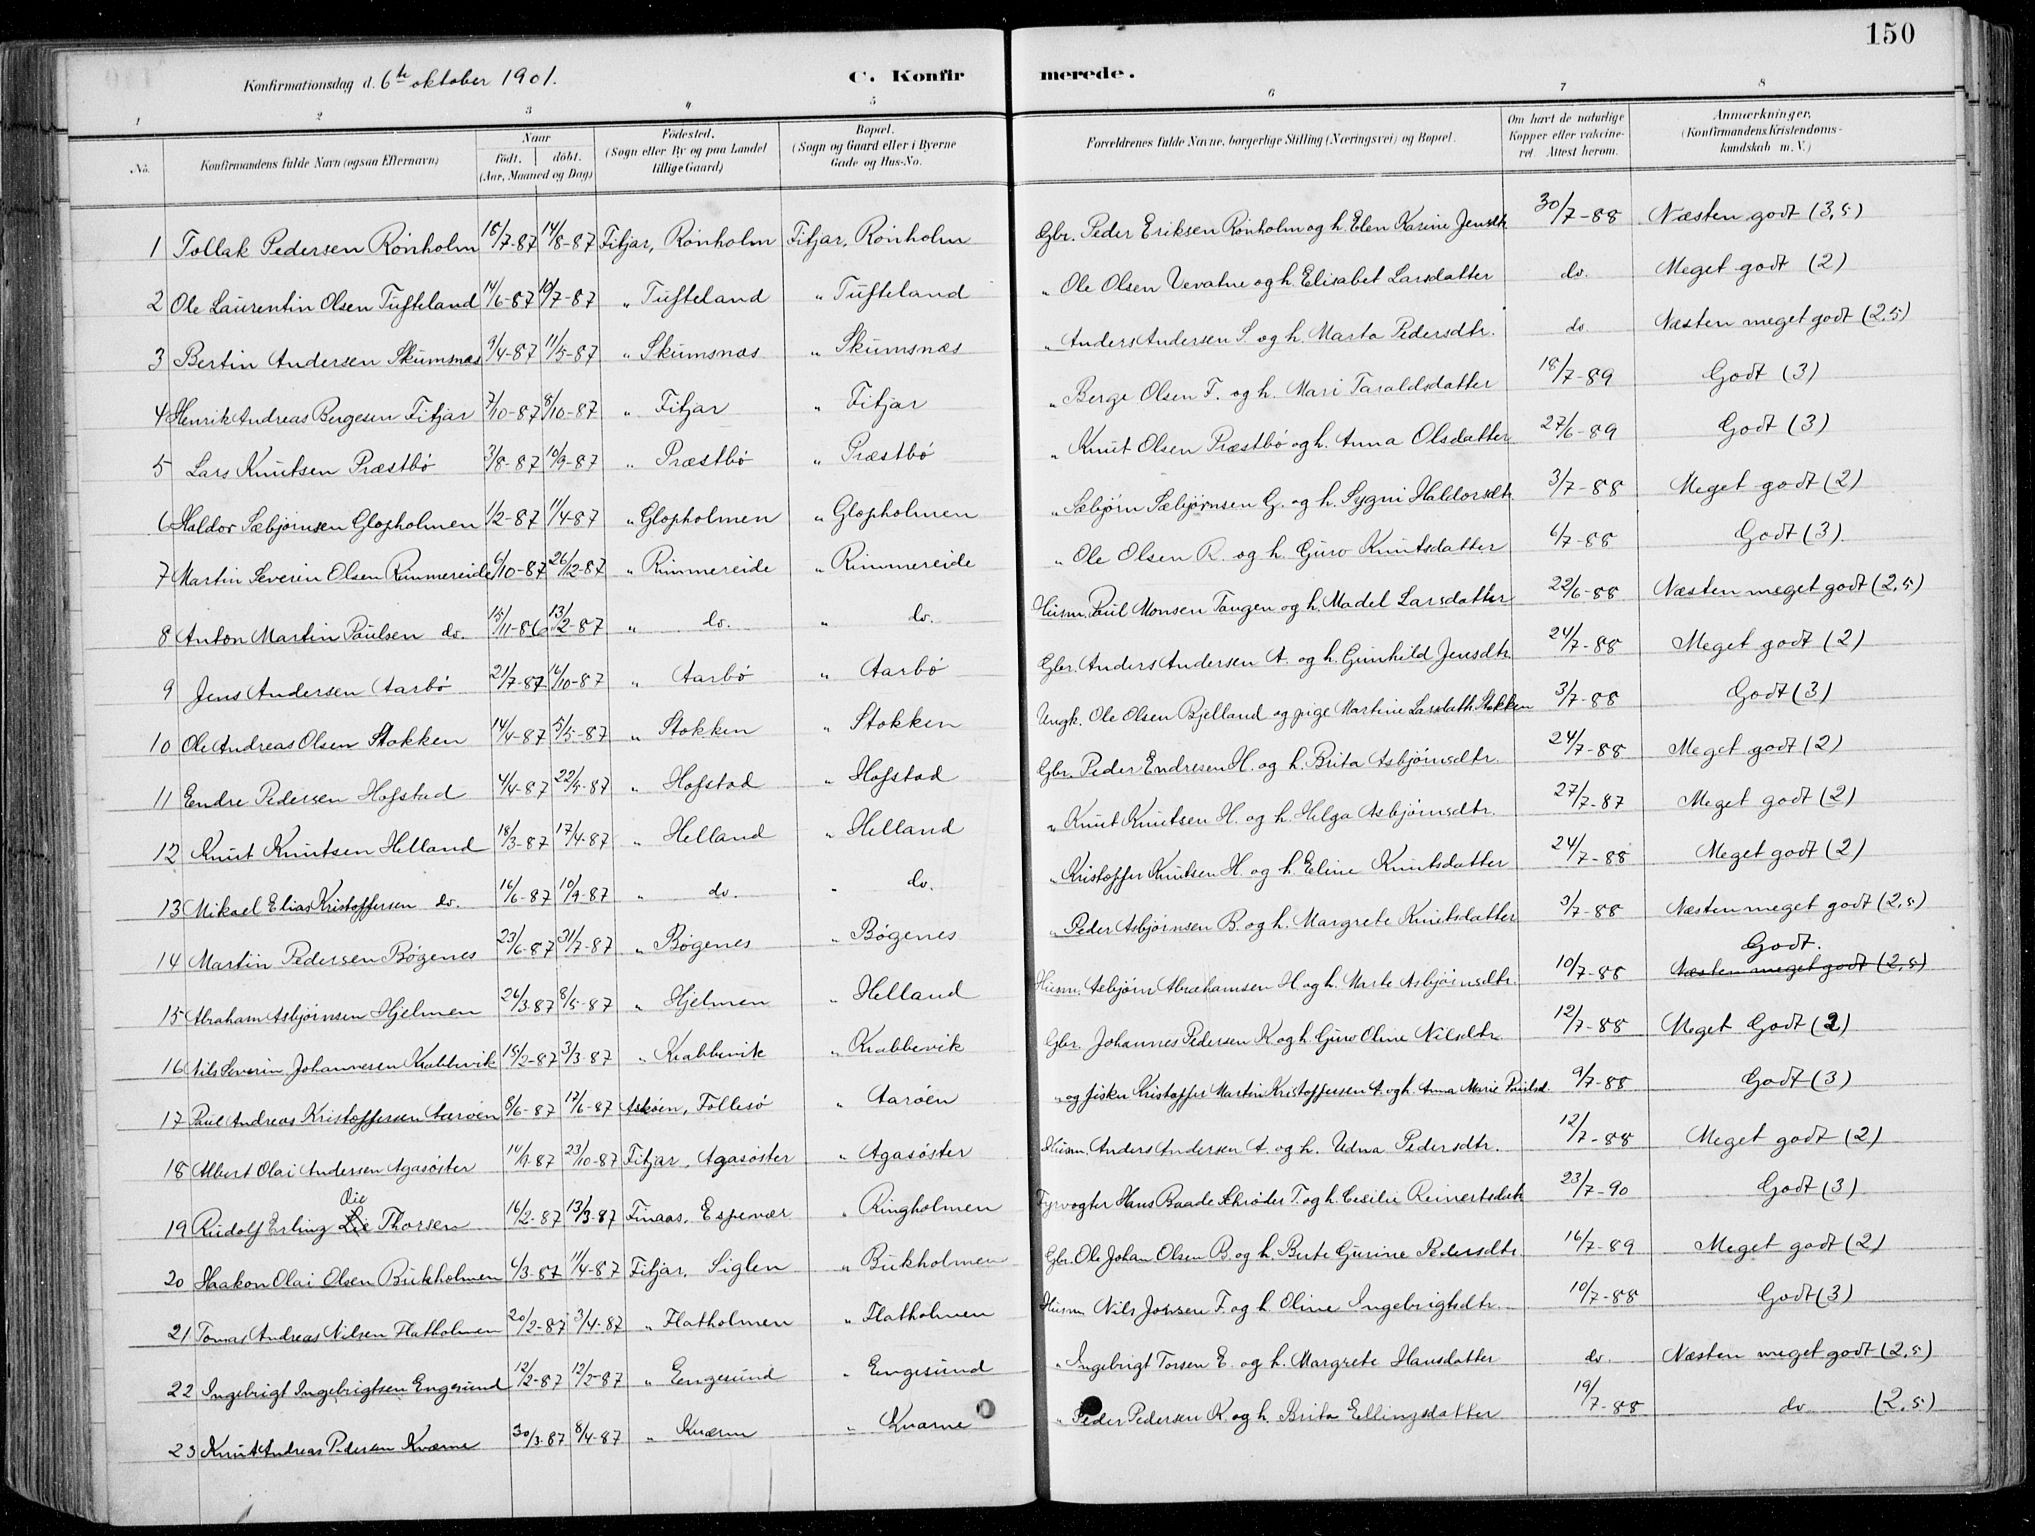 150
Konfirmationsdag d. 6te oktober 1901.
C. Konfirmerede.
1 2 3 4 5 6 7 8
No. Konfirmandens fulde Navn (ogsaa Efternavn) Naar født. døbt. (Aar, Maaned og Dag) Fødested. (Sogn eller By og paa Landet tillige Gaard) Bopæl. (Sogn og Gaard eller i Byerne Gade og Hus-No. Forældrenes fulde Navne, borgerlige Stilling (Næringsvei) og Bopæl. Om havt de naturlige Kopper eller vakcineret. Attest herom. Anmærkninger. (Konfirmandens Kristendomskundskab m. V.)
1 Tollak Pedersen Rönholm 18/7-87 14/8-87 Fitjar, Rönholm Fitjar, Rönholm Gbr. Peder Eriksen Rönholm og h. Elen Karine Jensdtr 30/7-88 Næsten godt (3,5)
2 Ole Laurentin Olsen Tufteland 14/6-87 10/7-87 " Tufteland " Tufteland " Ole Olsen Vevatne og h. Elisabet Larsdatter do. Meget godt (2)
3 Bertin Andersen Skumsnæs 9/4-87 11/5-87 " Skumsnæs " Skumsnæs " Anders Andersen S. og h. Marta Pedersdtr. do Næsten meget godt (2,5)
4 Henrik Andreas Bergesen Fitjar 7/10-87 8/10-87 " Fitjar " Fitjar " Berge Olsen F. og h. Mari Taraldsdatter 18/7-89 Godt (3)
5 Lars Knutsen Præstbø 3/8-87 10/9-87 " Præstbø " Præstbø " Knut Olsen Præstbø og h. Anna Olsdatter 27/6-89 Godt (3)
6 Haldor Sæbjørnsen Glopholmen 1/2-87 11/4-87 " Glopholmen " Glopholmen " Sæbjørn Sæbjørnsen G. og h. Sygni Haldorsdtr. 3/7-88 Meget godt (2)
7 Martin Severin Olsen Rimmereide 6/10-87 26/12-87 " Rimmereide " Rimmereide " Ole Olsen R. og h. Guro Knutsdatter 6/7-88 Godt (3)
8 Anton Martin Paulsen do. 15/11-86 13/2-87 " do. " do. Husm. Paul Monsen Tangen og h. Madel Larsdatter 22/6-88 Næsten meget godt (2,5)
9 Jens Andersen Aarbø 21/7-87 16/10-87 " Aarbø " Aarbø Gbr. Anders Andersen A. og h. Gunhild Jensdtr. 24/7-88 Meget godt (2)
10 Ole Andreas Olsen Stokken 14/4-87 5/5-87 " Stokken " Stokken Ungk. Ole Olsen Bjelland og pige Martine Larsdattr. Stokken 3/7-88 Godt (3)
11 Endre Pedersen Hofstad 4/4-87 22/5-87 " Hofstad " Hofstad Gbr. Peder Endresen H. og h. Brita Asbjørnsdtr. 24/7-88 Meget godt (2)
12 Knut Knutsen Helland 18/3-87 17/4-87 " Helland " Helland " Knut Knutsen H. og h. Helga Asbjørnsdtr. 27/7-87 Meget godt (2)
13 Mikael Elias Kristoffersen do. 16/6-87 10/9-87 " do. " do. " Kristoffer Knutsen H. og h. Eline Knutsdatter 24/7-88 Meget godt (2)
14 Martin Pedersen Bøgenes 23/6-87 31/7-87 " Bøgenes " Bøgenes " Peder Asbjørnsen B. og h. Margrete Knutsdatter 3/7-88 Næsten meget godt (2,5)
Godt.
15 Abraham Asbjørnsen Hjelmen 26/3-87 8/5-87 " Hjelmen " Helland Husm. Asbjørn Abrahamsen H. og h. Marte Asbjørnsdtr. 10/7-88 Næsten meget godt (2,5)
16 Nils Severin Johannesen Krabbevik 15/2-87 3/3-87 " Krabbevik " Krabbevik Gbr. Johannes Pedersen K. og h. Guro Oline Nilsdtr. 12/7-88 Meget Godt (2)
17 Paul Andreas Kristoffersen Aarøen 8/6-87 17/6-87 Askøen, Follesø " Aarøen " og fisker Kristoffer Martin Kristoffersen A. og h. Anna Marie Paulsd. 9/7-88 Godt (3)
18 Albert Olai Andersen Agasøster 14/9-87 23/10-87 Fitjar, Agasøster " Agasøster Husm. Anders Andersen A. og h. Udna Pedersdtr. 12/7-88 Meget godt (2)
19 Rudolf Erling Lie Thorsen 16/2-87 13/3-87 Finaas, Espevær " Ringholmen Fyrvogter Hans Baade Schrøder T. og h. Cecilie Reinertsdatr 23/7-90 Godt (3)
20 Haakon Olai Olsen Bukholmen 6/3-87 11/4-87 Fitjar, Siglen " Bukholmen Gbr. Ole Johan Olsen B. og h. Berte Gurine Pedersdtr 16/7-89 Meget godt (2)
21 Tomas Andreas Nilsen Flatholmen 20/2-87 3/4-87 " Flatholmen " Flatholmen Husm Nils Jonsen F. og h. Oline Ingebrigtsdtr. 10/7-88 Godt (3)
22 Ingebrigt Ingebrigtsen Engesund 12/2-87 12/2-87 " Engesund " Engesund " Ingebrigt Torsen E. og h. Margrete Hansdatter do. Næsten meget godt (2,5)
23 Knut Andreas Pedersen Kværne 30/3-87 8/4-87 " Kværne " Kværne " Peder Pedersen K. og h. Brita Ellingsdatter 19/7-88 do (2,5)